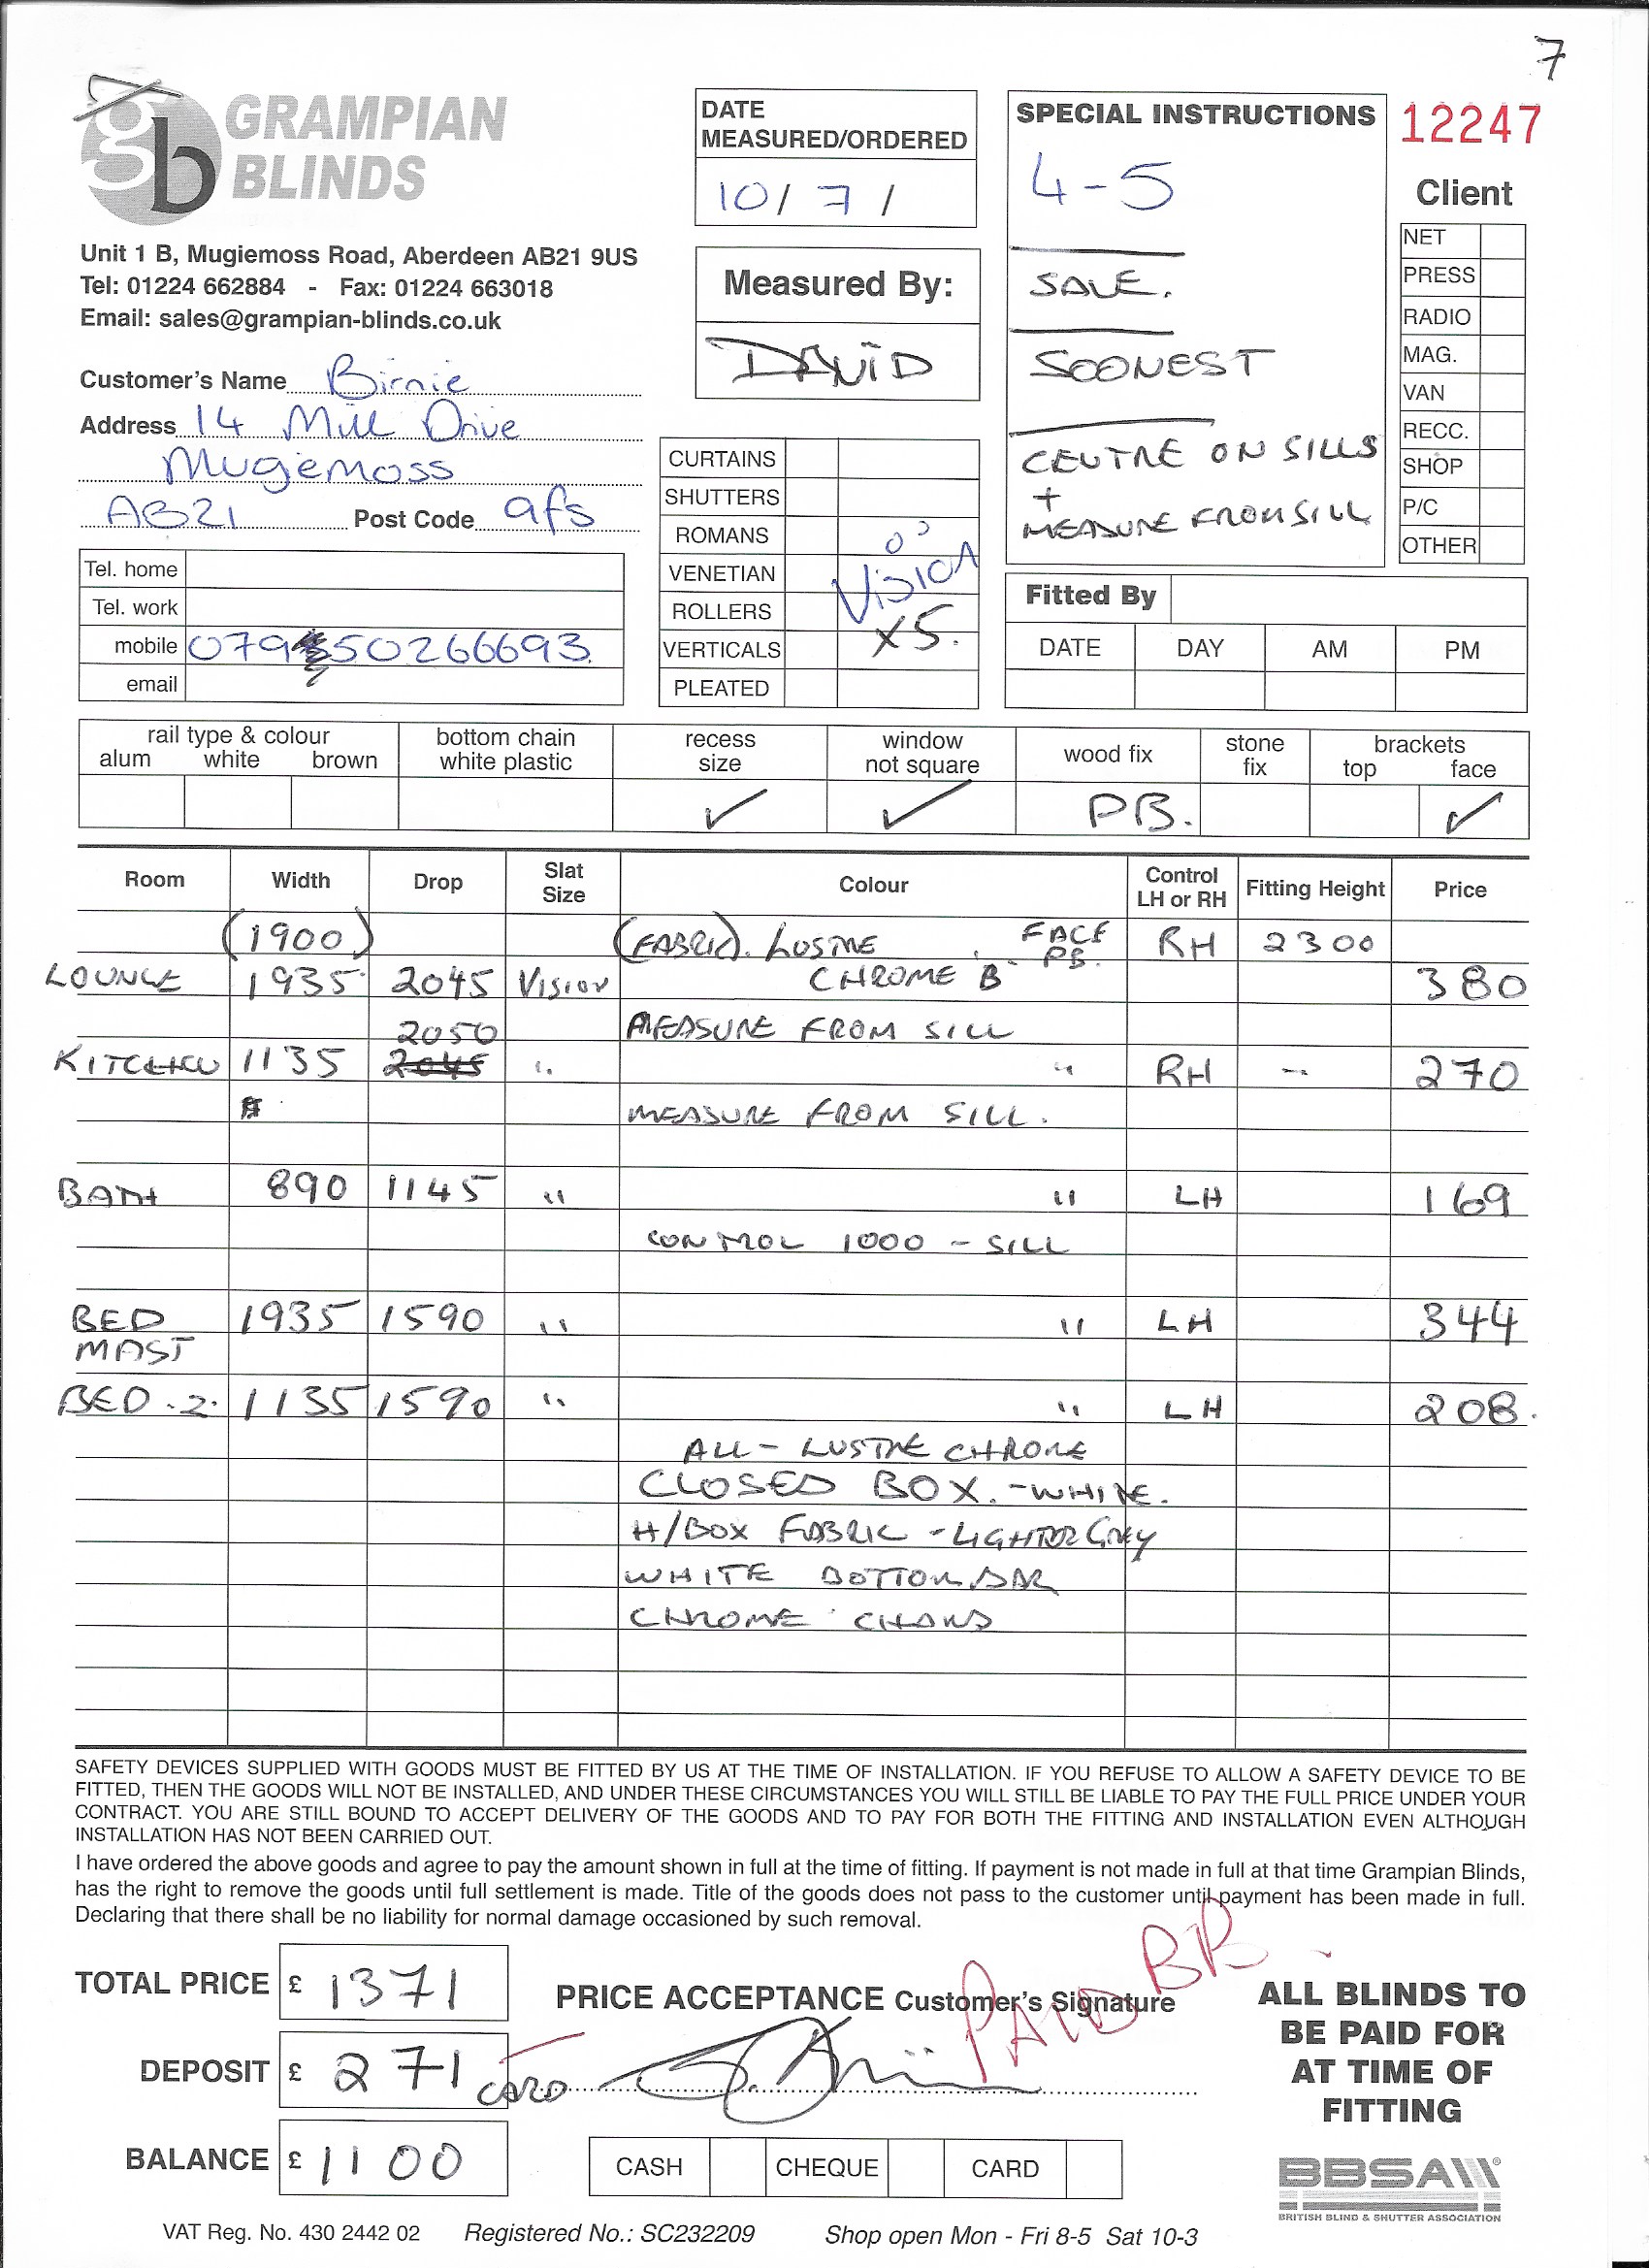 7
gb GRAMPIAN BLINDS
Unit 1 B, Mugiemoss Road, Aberdeen AB21 9US
Tel: 01224 662884 - Fax: 01224 663018
Email: sales@grampian-blinds.co.uk
Customer's Name Birnie
Address 14 Mill Drive
Mugiemoss
AB21 Post Code 9fs
Tel. home
Tel. work
mobile 079 50266693
email
DATE
MEASURED/ORDERED
10/ 7 /
Measured By:
DAVID
CURTAINS
SHUTTERS
ROMANS
VENETIAN
ROLLERS
VERTICALS
PLEATED
Vision
x5.
SPECIAL INSTRUCTIONS
4-5
SALE.
SOONEST
CENTRE ON SILLS
+
MEASURE FROM SILL
12247
Client
NET
PRESS
RADIO
MAG.
VAN
RECC.
SHOP
P/C
OTHER
Fitted By
DATE DAY AM PM
rail type & colour
alum white brown
bottom chain
white plastic
recess
size ✓
window
not square ✓
wood fix PB.
stone
fix
brackets
top face ✓
Room Width Drop Slat Size Colour Control LH or RH Fitting Height Price
(1900) (FABRIC). LUSTRE FACE PB. RH 2300
LOUNGE 1935 2045 Vision CHROME B 380
2050 MEASURE FROM SILL
KITCHEN 1135 2045 " " RH - 270
MEASURE FROM SILL.
BATH 890 1145 " " LH 169
CONTROL 1000 - SILL
BED MAST 1935 1590 " " LH 344
BED .2. 1135 1590 " " LH 208.
ALL - LUSTRE CHROME
CLOSED BOX. - WHITE.
H/BOX FABRIC - LIGHTER GREY
WHITE BOTTOM BAR
CHROME CHAINS
SAFETY DEVICES SUPPLIED WITH GOODS MUST BE FITTED BY US AT THE TIME OF INSTALLATION. IF YOU REFUSE TO ALLOW A SAFETY DEVICE TO BE
FITTED, THEN THE GOODS WILL NOT BE INSTALLED, AND UNDER THESE CIRCUMSTANCES YOU WILL STILL BE LIABLE TO PAY THE FULL PRICE UNDER YOUR
CONTRACT. YOU ARE STILL BOUND TO ACCEPT DELIVERY OF THE GOODS AND TO PAY FOR BOTH THE FITTING AND INSTALLATION EVEN ALTHOUGH
INSTALLATION HAS NOT BEEN CARRIED OUT.
I have ordered the above goods and agree to pay the amount shown in full at the time of fitting. If payment is not made in full at that time Grampian Blinds,
has the right to remove the goods until full settlement is made. Title of the goods does not pass to the customer until payment has been made in full.
Declaring that there shall be no liability for normal damage occasioned by such removal.
TOTAL PRICE £ 1371
DEPOSIT £ 271 CARD
BALANCE £ 1100
PRICE ACCEPTANCE Customer's Signature
PAID BB
CASH CHEQUE CARD
ALL BLINDS TO
BE PAID FOR
AT TIME OF
FITTING
BBSA
BRITISH BLIND & SHUTTER ASSOCIATION
VAT Reg. No. 430 2442 02 Registered No.: SC232209 Shop open Mon - Fri 8-5 Sat 10-3